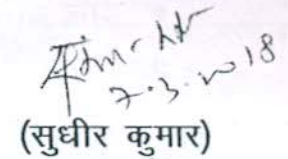 7.3.2018
(सुधीर कुमार)